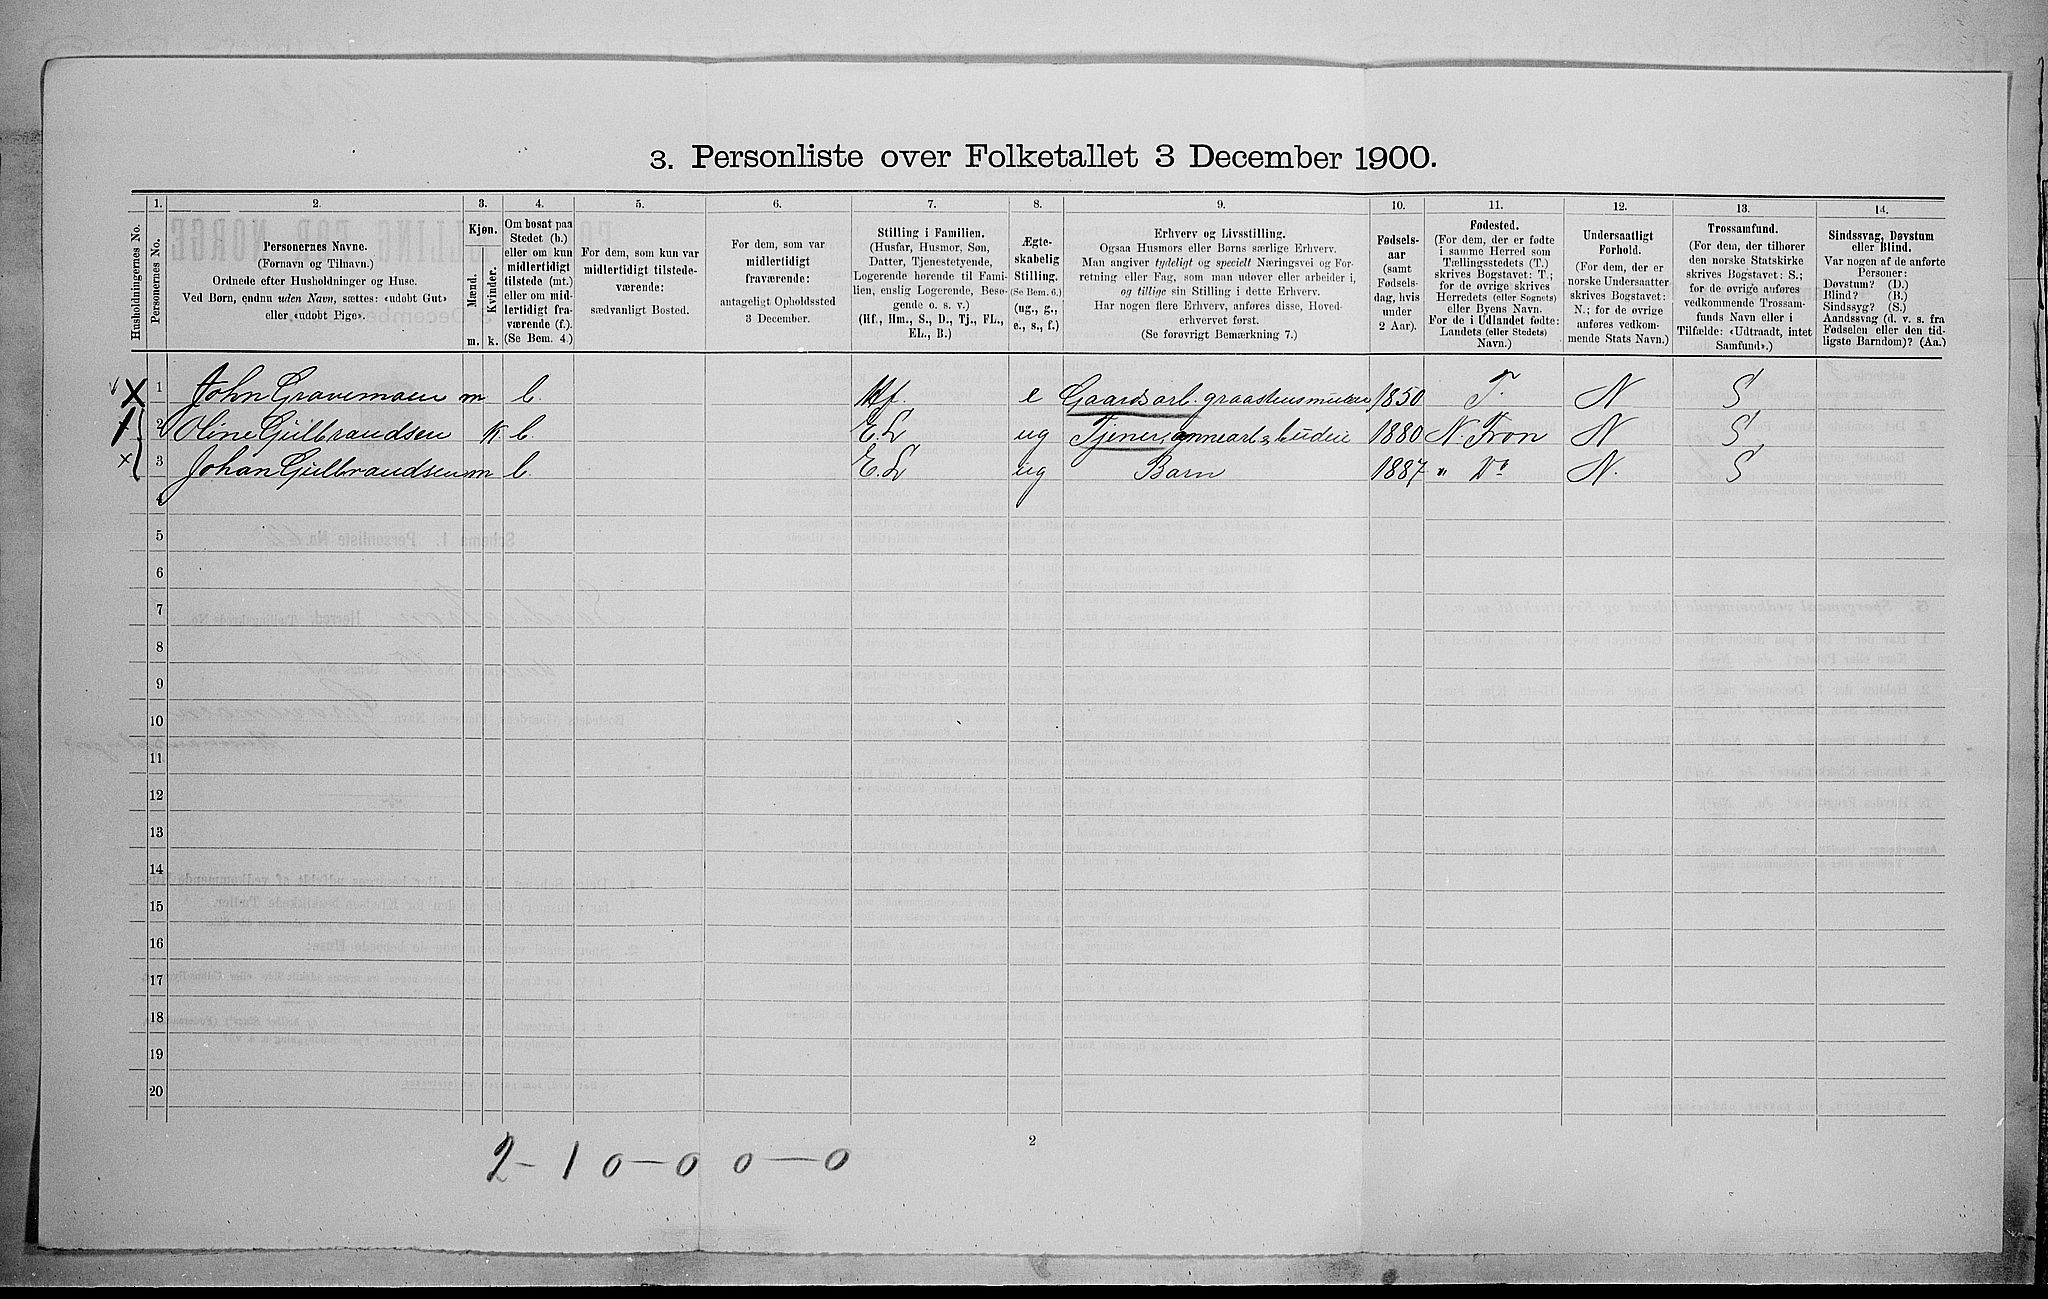 3. Personliste over Folketallet 3 December 1900.
1. 2. 3. 4. 5. 6. 7. 8. 9. 10. 11. 12. 13. 14.
Husholdningernes No.
Personernes No.
Personernes Navne.
(Fornavn og Tilnavn.)
Ordnede efter Husholdninger og Huse.
Ved Børn, endnu uden Navn, sættes: «udøbt Gut»
eller «udøbt Pige».
Kjøn.
Mænd.
Kvinder.
m. k.
Om bosat paa
Stedet (b.)
eller om kun
midlertidigt
tilstede (mt.)
eller om mid-
lertidigt fra-
værende (f.).
(Se Bem. 4.)
For dem, som kun var
midlertidigt tilstede-
værende:
sædvanligt Bosted.
For dem, som var
midlertidigt
fraværende:
antageligt Opholdssted
3 December.
Stilling i Familien.
(Husfar, Husmor, Søn,
Datter, Tjenestetyende,
Logerende hørende til Fami-
lien, enslig Logerende, Besø-
gende o. s. v.)
(Hf., Hm., S., D., Tj., FL.,
EL., B.)
Ægte-
skabelig
Stilling.
(Se Bem. 6.)
(ug., g.,
e., s., f.)
Erhverv og Livsstilling.
Ogsaa Husmors eller Børns særlige Erhverv.
Man angiver tydeligt og specielt Næringsvei og For-
retning eller Fag, som man udøver eller arbeider i,
og tillige sin Stilling i dette Erhverv.
Har nogen flere Erhverv, anføres disse, Hoved-
erhvervet først.
(Se forøvrigt Bemærkning 7.)
Fødsels-
aar
(samt
Fødsels-
dag, hvis
under
2 Aar).
Fødested.
(For dem, der er fødte
i samme Herred som
Tællingsstedets (T.)
skrives Bogstavet: T.;
for de øvrige skrives
Herredets (eller Sognets)
eller Byens Navn.
For de i Udlandet fødte:
Landets (eller Stedets)
Navn.)
Undersaatligt
Forhold.
(For dem, der er
norske Undersaatter
skrives Bogstavet:
N.; for de øvrige
anføres vedkom-
mende Stats Navn.)
Trossamfund.
(For dem, der tilhører
den norske Statskirke
skrives Bogstavet: S.;
for de øvrige anføres
vedkommende Trossam-
funds Navn eller i
Tilfælde: «Udtraadt, intet
Samfund».)
Sindssvag, Døvstum
eller Blind.
Var nogen af de anførte
Personer:
Døvstum? (D.)
Blind? (B.)
Sindssyg? (S.)
Aandssvag (d. v. s. fra
Fødselen eller den tid-
ligste Barndom)? (Aa.)
X 1 John Gravemoen m b. Hf. e Gaardsarb. 1850 T. N S
1 2 Oline Gulbrandsen k b. E.L ug Tjener, budeie 1880 N. Fron N S
x 3 Johan Gulbrandsen m b. E.L ug Barn 1887 " Do N. S
4
5
6
7
8
9
10
11
12
13
14
15
16
17
18
19
20
2
2 - 1 0 - 0 0 - 0